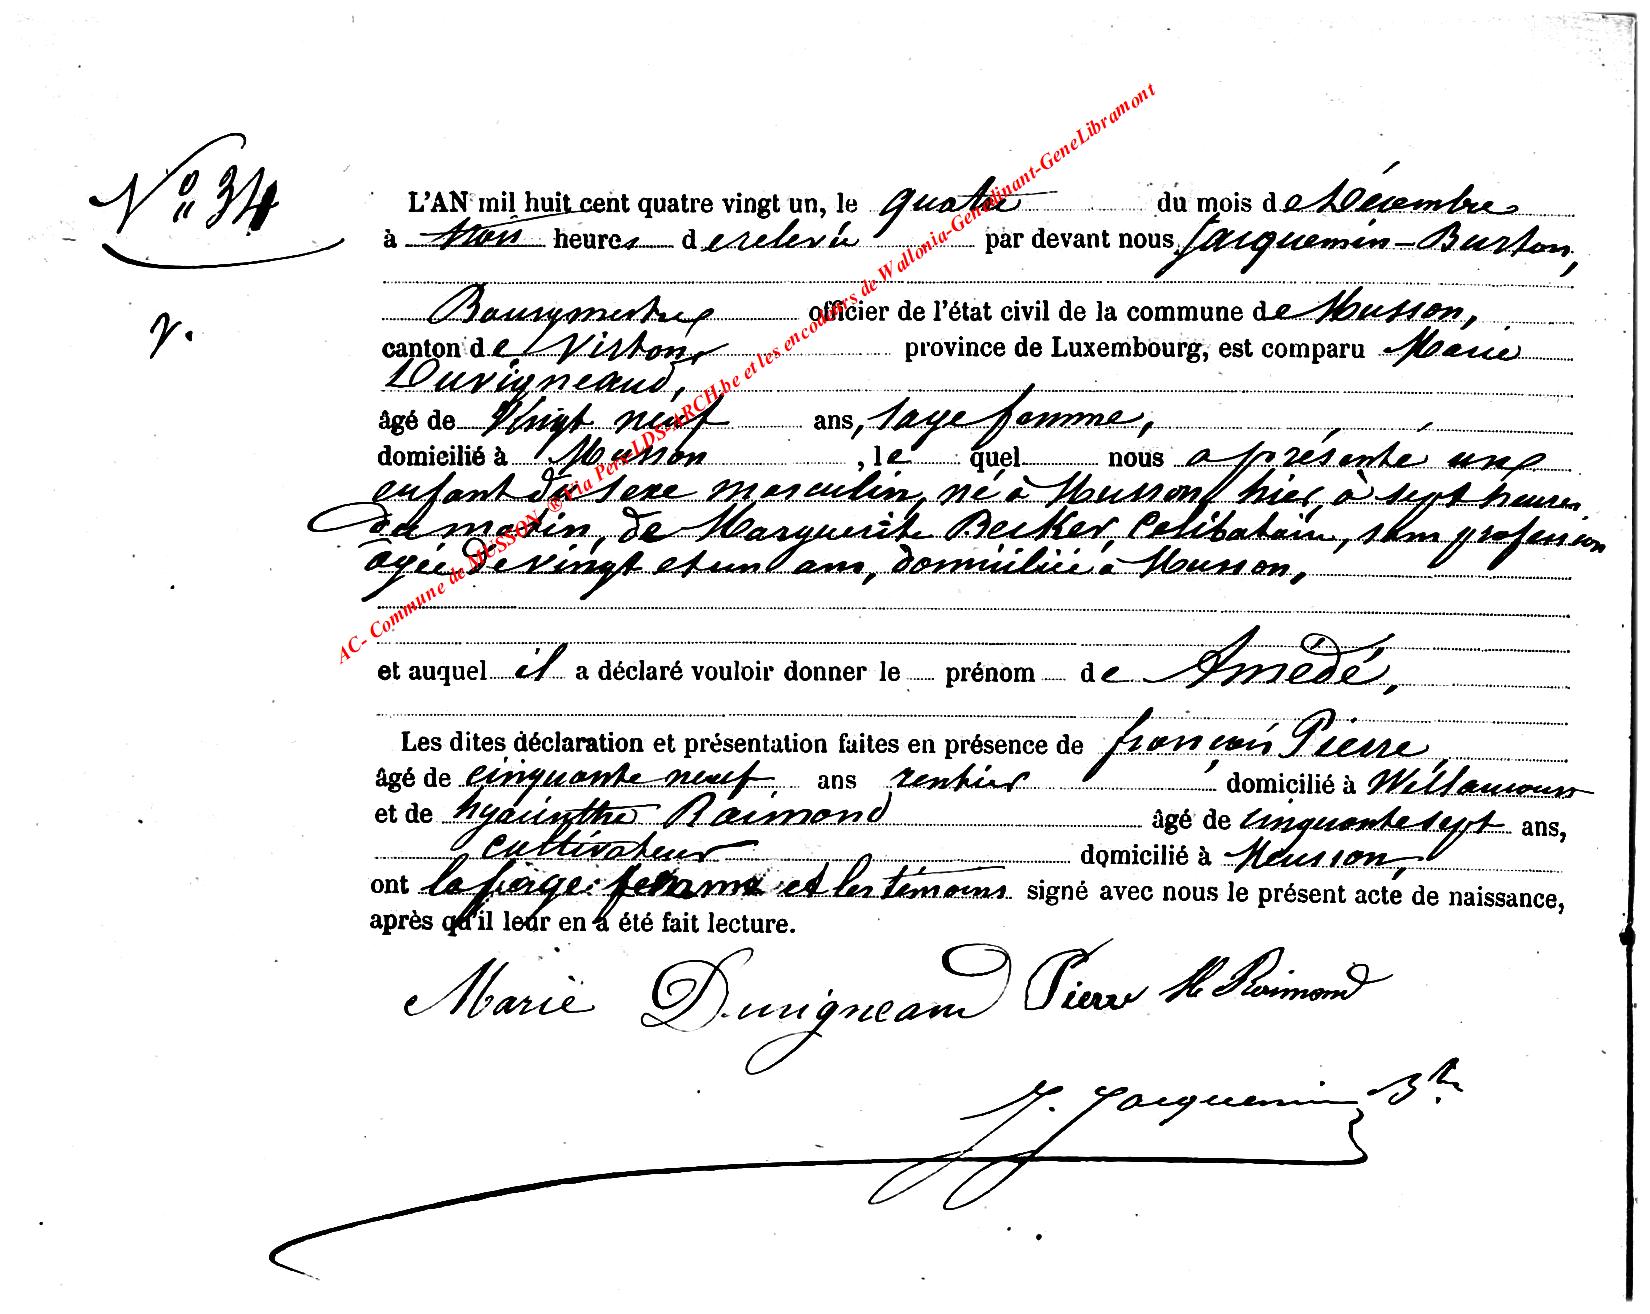 N° 34
L'AN mil huit cent quatre vingt un, le quatre du mois de Décembre
à trois heures de relevée par devant nous Jacquemin-Burton,
Bourgmestre officier de l'état civil de la commune de Musson,
canton de Virton, province de Luxembourg, est comparu Marie
Duvigneaud,
âgé de Vingt neuf ans, sage femme,
domicilié à Musson, le quel nous a présenté un
enfant du sexe masculin, né à Musson, hier, à sept heures
du matin, de Marguerite Becker, Celibataire, sans profession
agée de vingt et un ans, domiciliée à Musson,
et auquel il a déclaré vouloir donner le prénom de Amédé,
Les dites déclaration et présentation faites en présence de françois Pierre,
âgé de cinquante neuf ans rentier domicilié à Willancourt
et de hyacinthe Raimond âgé de cinquante sept ans,
cultivateur domicilié à Musson,
ont la sage femme et les témoins signé avec nous le présent acte de naissance,
après qu'il leur en a été fait lecture.
Marie Duvigneaud Pierre H Raimond
J. Jacquemin Bton
AC- Commune de MUSSON ® Via Pers LDS-ARCH.be et les encodeurs de Wallonia-Genedinant-GeneLibramont